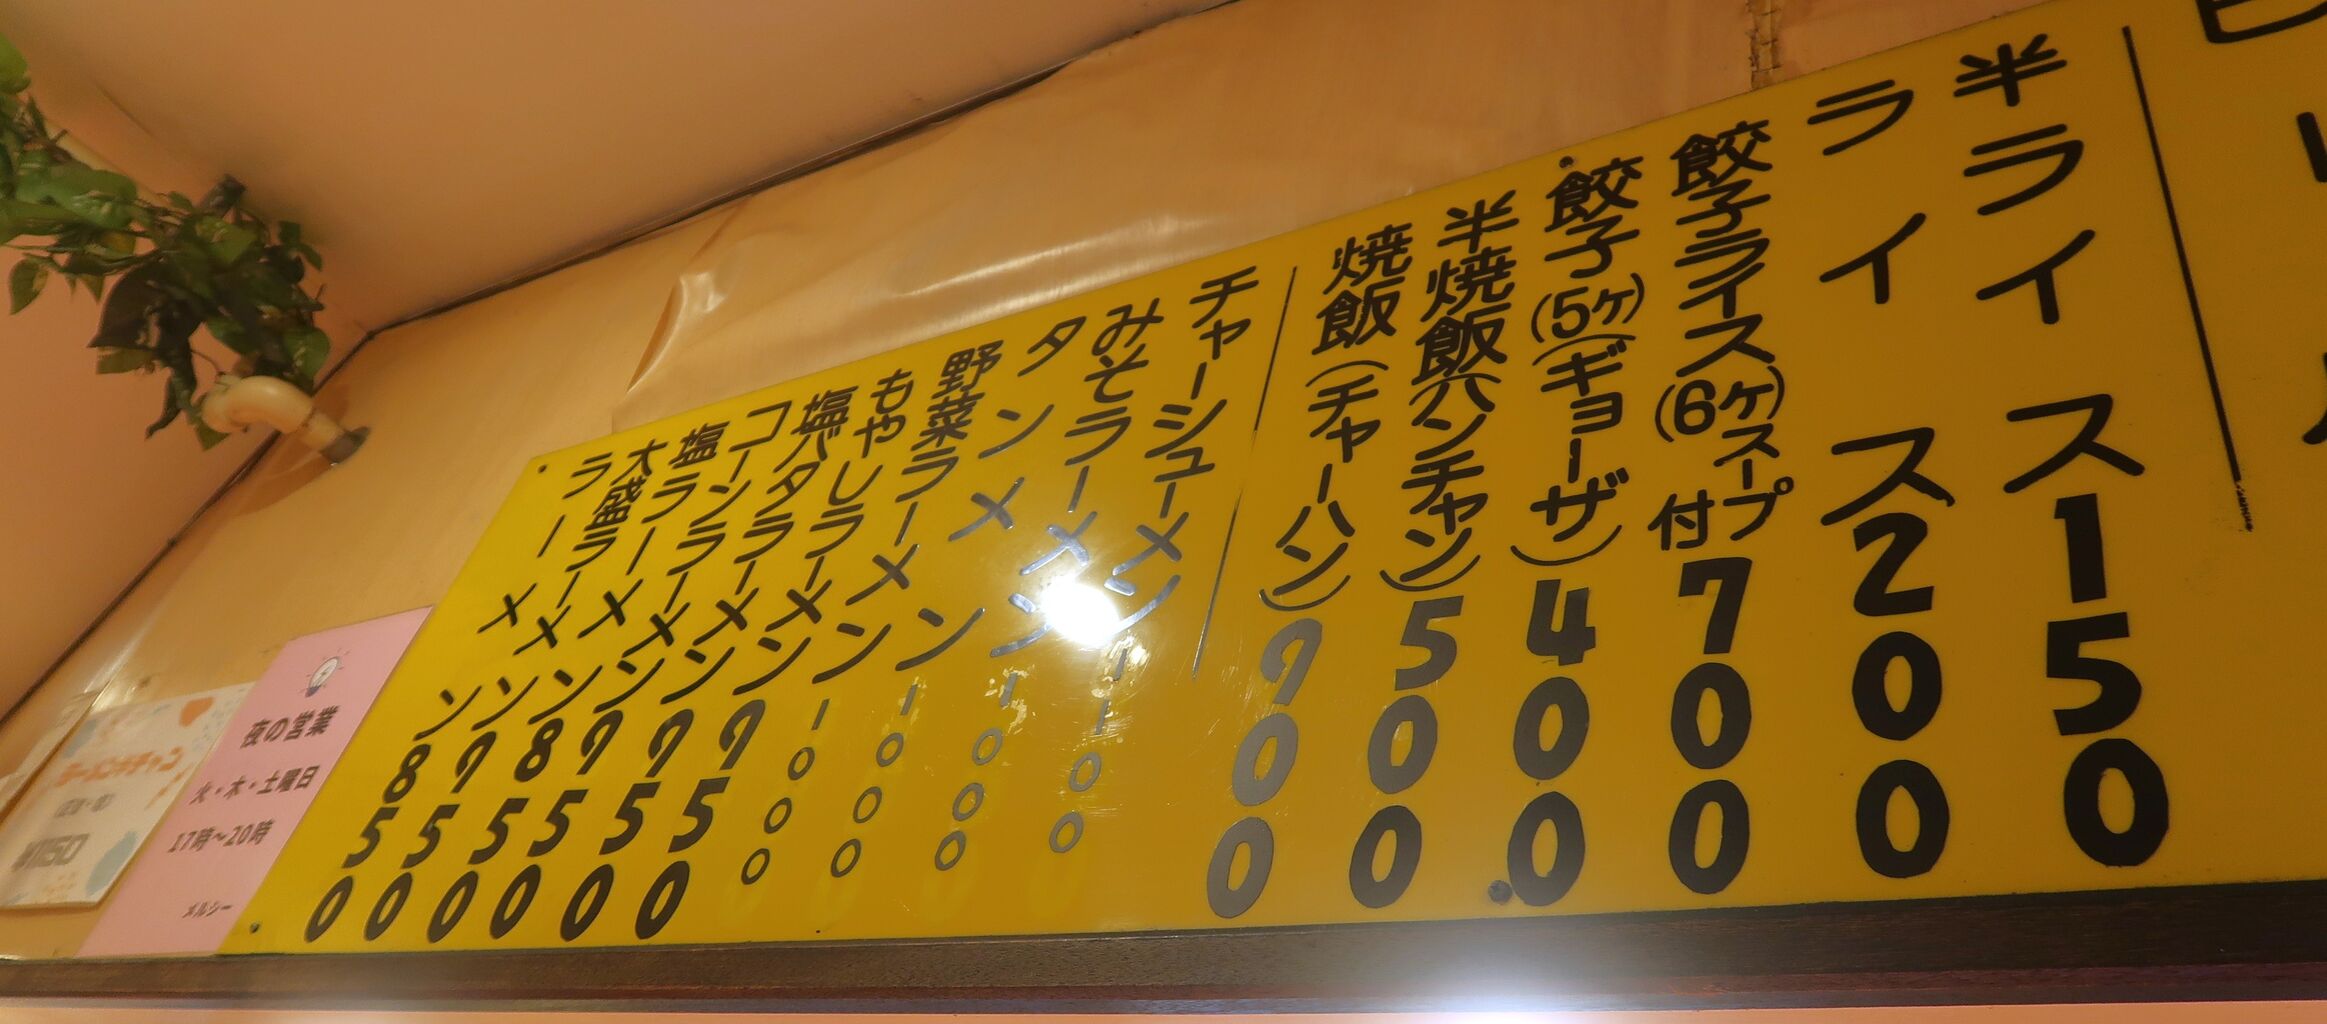 半ライス150
ライス200
餃子ライス(6ヶ)スープ付700
餃子(5ヶ)(ギョーザ)400
半焼飯(ハンチャン)500
焼飯(チャーハン)900
チャーシューメン一一〇〇
みそラーメン一〇〇〇
タンメン一〇〇〇
野菜ラーメン一〇〇〇
もやしラーメン950
塩バタラーメン950
コーンラーメン950
塩ラーメン850
大盛ラーメン950
ラーメン850
夜の営業
火・木・土曜日
17時～20時
メルシー